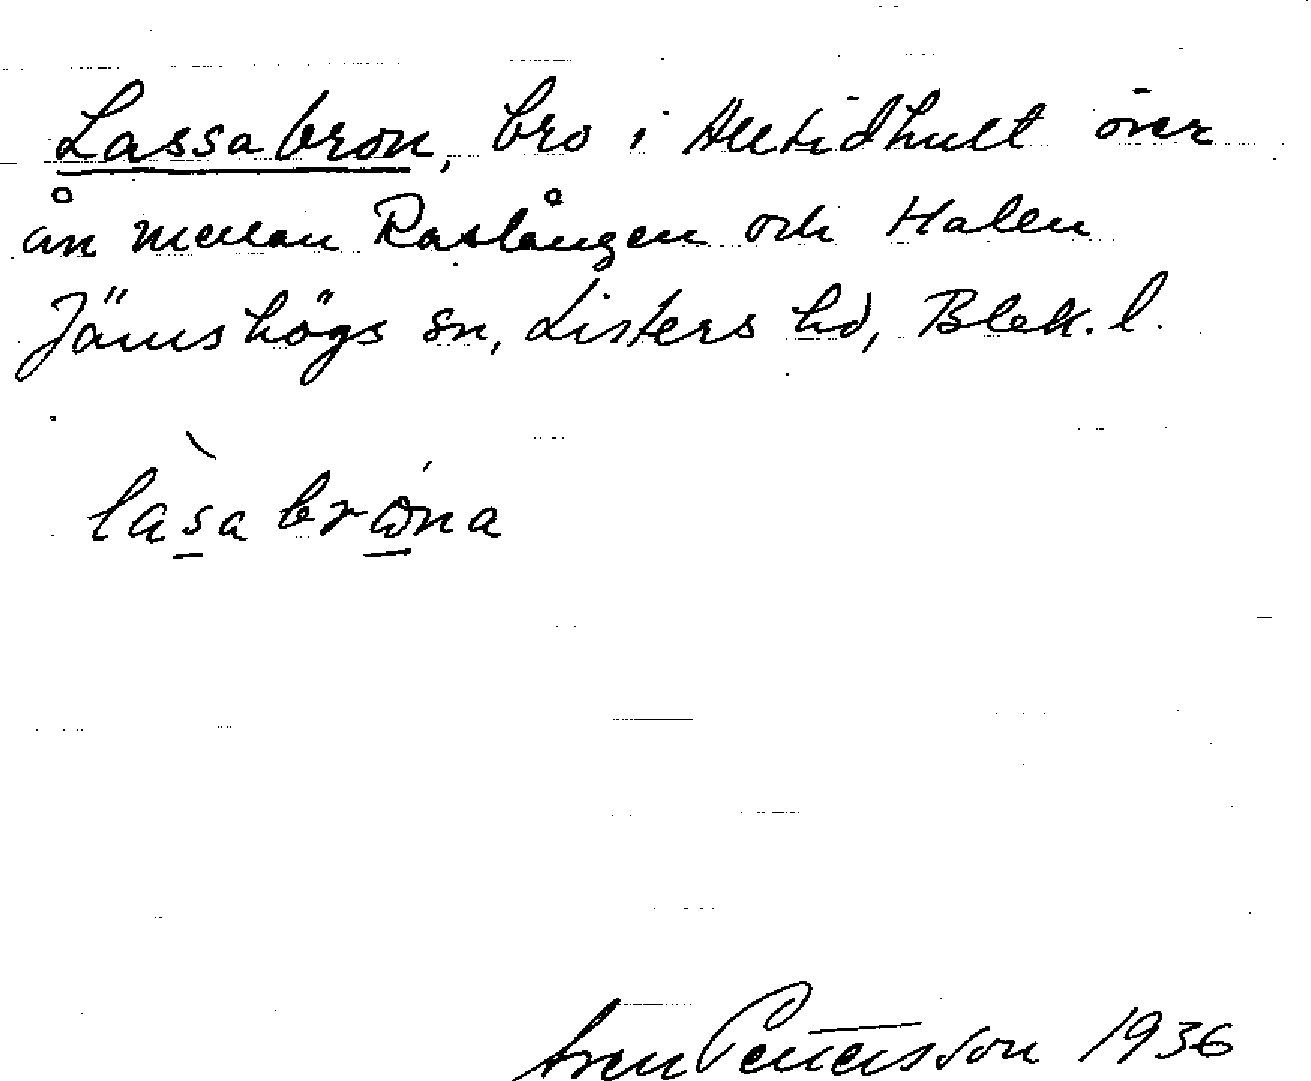 Lassabron, bro i Alltidhult över
ån mellan Raslången och Halen
Jämshögs sn, Listers hd, Blek. l.
làsa brǿna
Sven Pettersson 1936